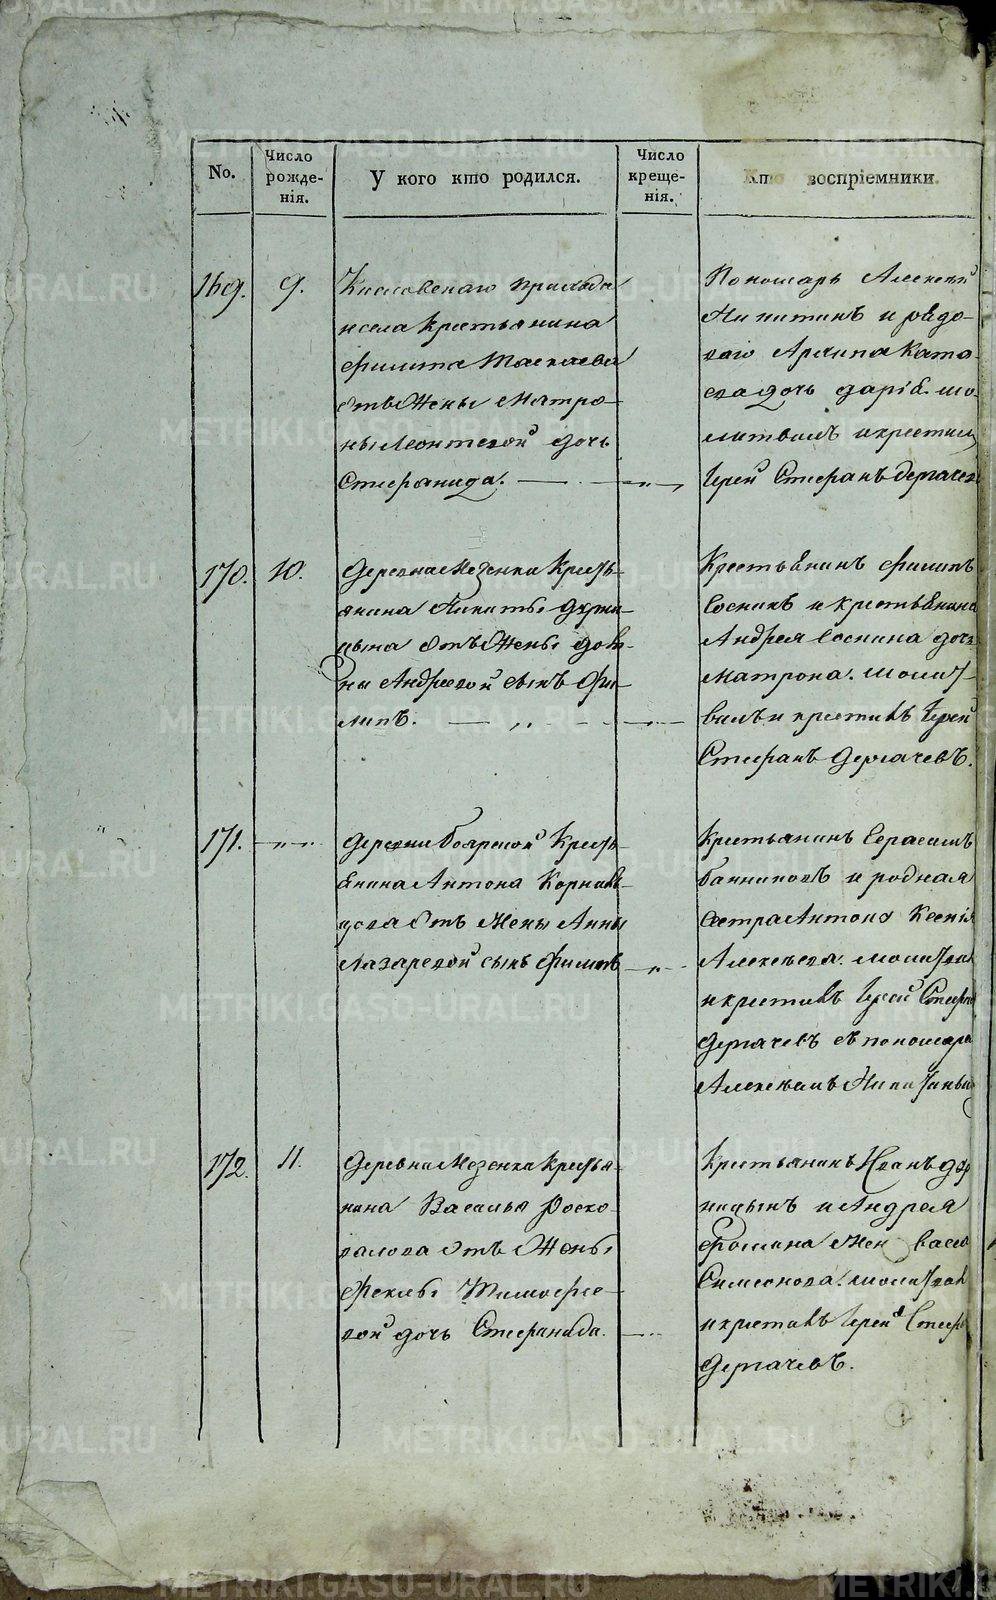 No.
Число рожде-
нія.
У кого кто родился.
Число креще-
нія.
Кто воспріемники.
169.
9.
Кисловскаго прихода
и села крестьянина
Филипа Таскаева
отъ жены Матро-
ны Леонтевой дочь
Стефанида.
Пономарь Алексѣй
Никитинъ и рядо-
ваго Архипа Като-
ва дочь Дарія. мо-
литвилъ и крестилъ
Іерей Стефанъ Дергачев
170.
10.
Деревни Мезенки Кресть-
янина Никиты
отъ жены
Андреевой сынъ Фи-
липъ.
Крестьянинъ Филипъ
Соснинъ и крестьянина
Андрея Соснина дочь
Матрона. молит-
вилъ и крестилъ Іерей
Стефанъ Дергачевъ.
171.
Деревни Боярской Кресть-
янина Антона Корнѣв-
цова отъ жены Анны
Лазаревой сынъ Филипъ
Крестьянинъ Герасимъ
Банниковъ и родная
сестра Антона Ксенія
Алексѣева. молитвил
и крестилъ Іерей Стефан
Дергачевъ съ пономаремъ
Алексѣемъ Никитинымъ
172.
11.
Деревни Мезенки Крестья-
нина Василья Роско-
валова отъ жены
Феклы Тимофѣе-
вой дочь Стефанида.
Крестьянинъ Иванъ
и Андрея
Фомина жен Васса
Симеонова. молитвил
и крестилъ Іерей Стефан
Дергачевъ.
METRIKI.GASO-URAL.RU